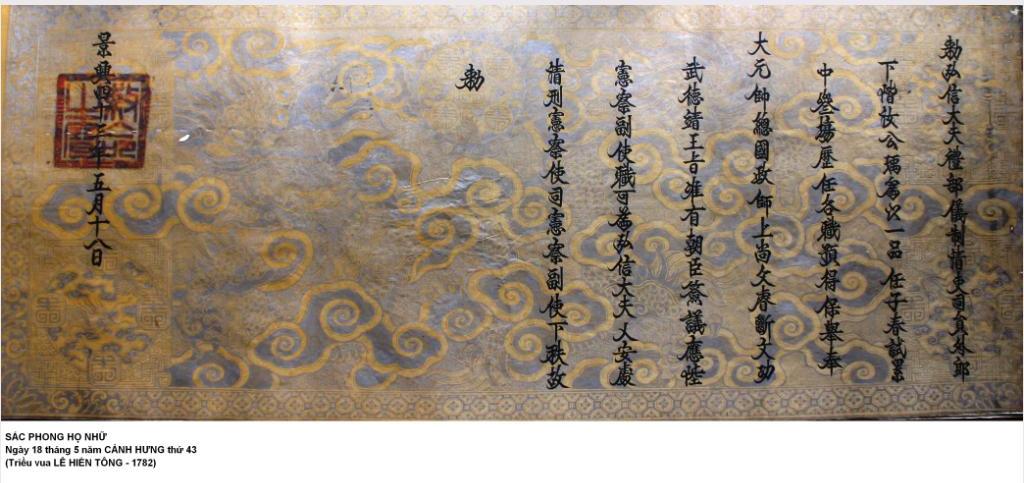 勅弘信大夫禮部儀制清吏司員外郎
下階汝公瑀爲以一品任子春試累
中參揚歷任各職預得保舉奉
大元帥總國政師上尚父睿斷文功
武德靖王旨准有朝臣僉議應陞
憲察副使職可爲弘信大夫乂安處
清刑憲察使司憲察副使下秩故
勅
景興四十三年五月十八日
SẮC PHONG HỌ NHỮ
Ngày 18 tháng 5 năm CẢNH HƯNG thứ 43
(Triều vua LÊ HIỂN TÔNG - 1782)